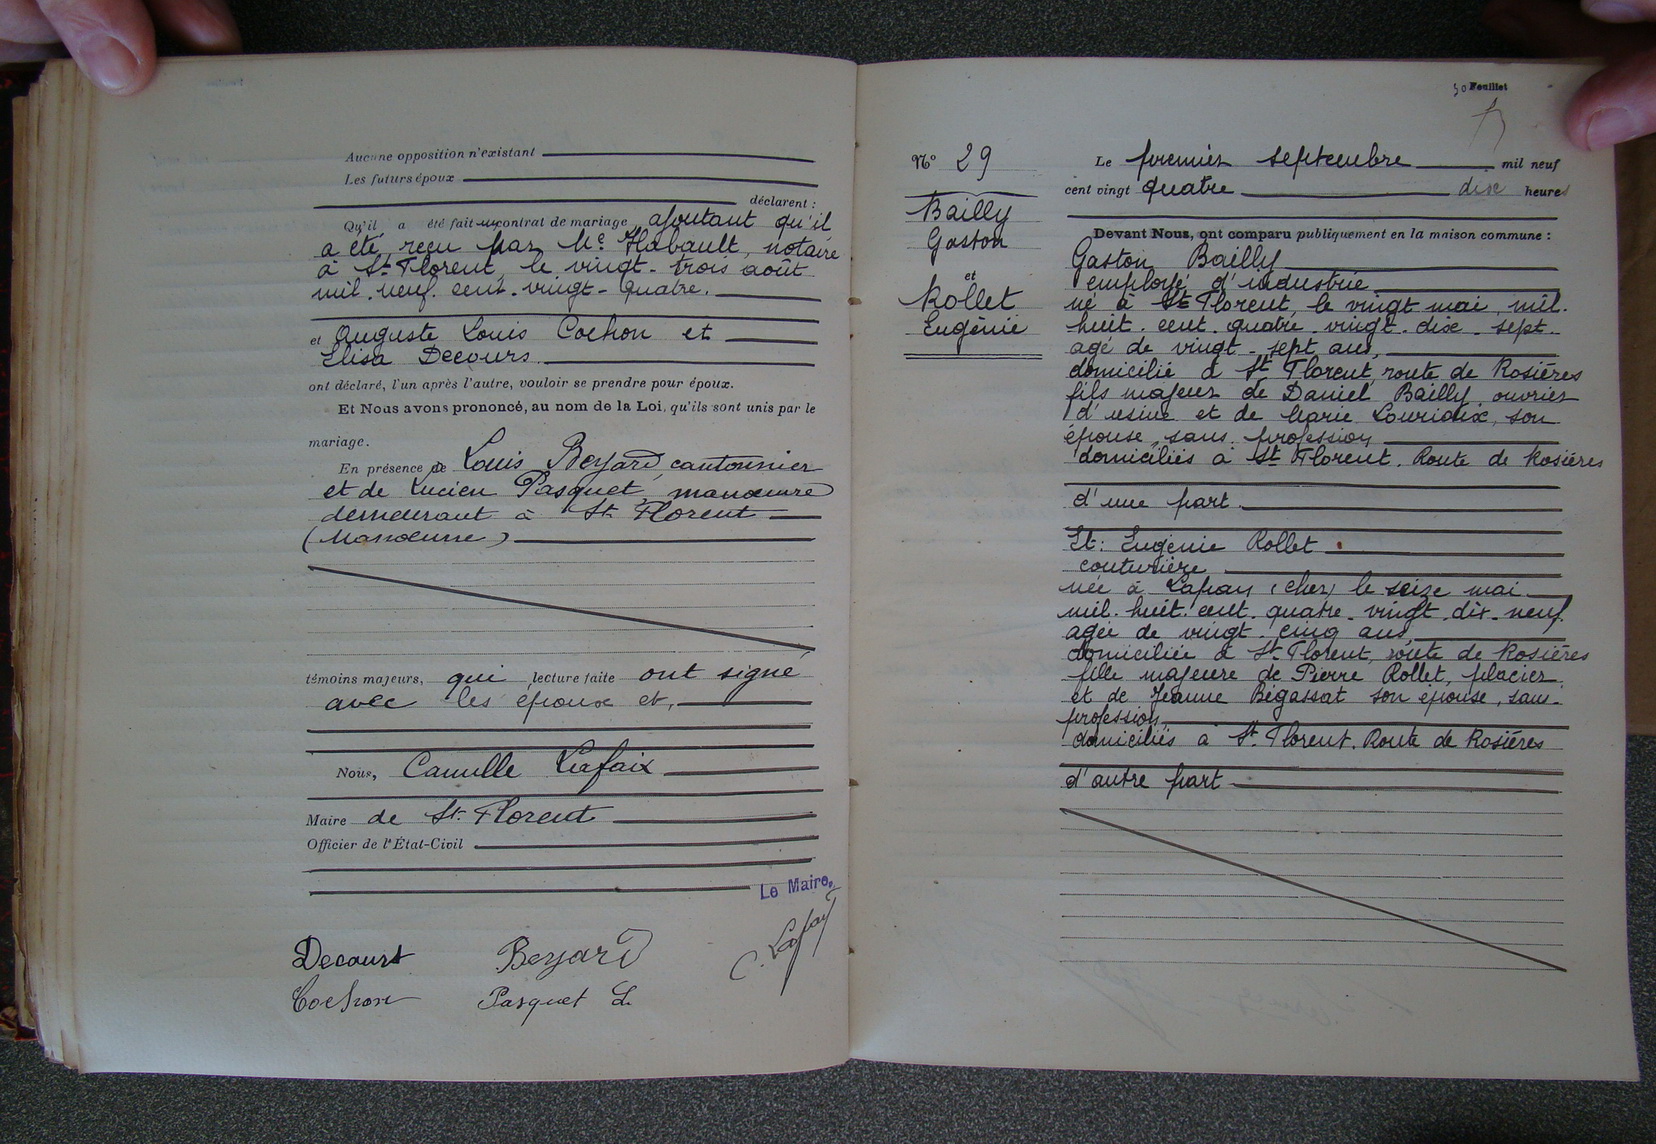 Aucune opposition n'existant
Les futurs époux
déclarent :
Qu'il a été fait un contrat de mariage ajoutant qu'il
a été reçu par Me Habault, notaire
à St Florent, le vingt-trois août
mil neuf cent vingt-quatre.
et Auguste Louis Cochon et
Elisa Decours
ont déclaré, l'un après l'autre, vouloir se prendre pour époux.
Et Nous avons prononcé, au nom de la Loi, qu'ils sont unis par le
mariage.
En présence de Louis Beyard, cantonnier
et de Lucien Pasquet, manœuvre
demeurant à St Florent
(Manœuvre)
témoins majeurs, qui lecture faite ont signé
avec les époux et,
Nous, Camille Lafaix
Maire de St Florent
Officier de l'État-Civil
Le Maire,
Decourt Beyard C. Lafaix
Cochon Pasquet L
30 Feuillet
N° 29
Bailly
Gaston
et
Rollet
Eugénie
Le premier septembre mil neuf
cent vingt quatre dix heures
Devant Nous, ont comparu publiquement en la maison commune :
Gaston Bailly
employé d'industrie
né à St Florent, le vingt mai mil
huit cent quatre vingt dix sept
agé de vingt-sept ans,
domicilié à St Florent, route de Rosières
fils majeur de Daniel Bailly, ouvrier
d'usine et de Marie Louridux, son
épouse, sans profession
domiciliés à St Florent. Route de Rosières
d'une part.
Et: Eugénie Rollet
couturière
née à Lapan (Cher) le seize mai
mil huit cent quatre-vingt-dix-neuf
agée de vingt-cinq ans
domiciliée à St Florent, route de Rosières
fille majeure de Pierre Rollet, placier
et de Jeanne Bégassat son épouse, sans
profession,
domiciliés à St Florent. Route de Rosières
d'autre part